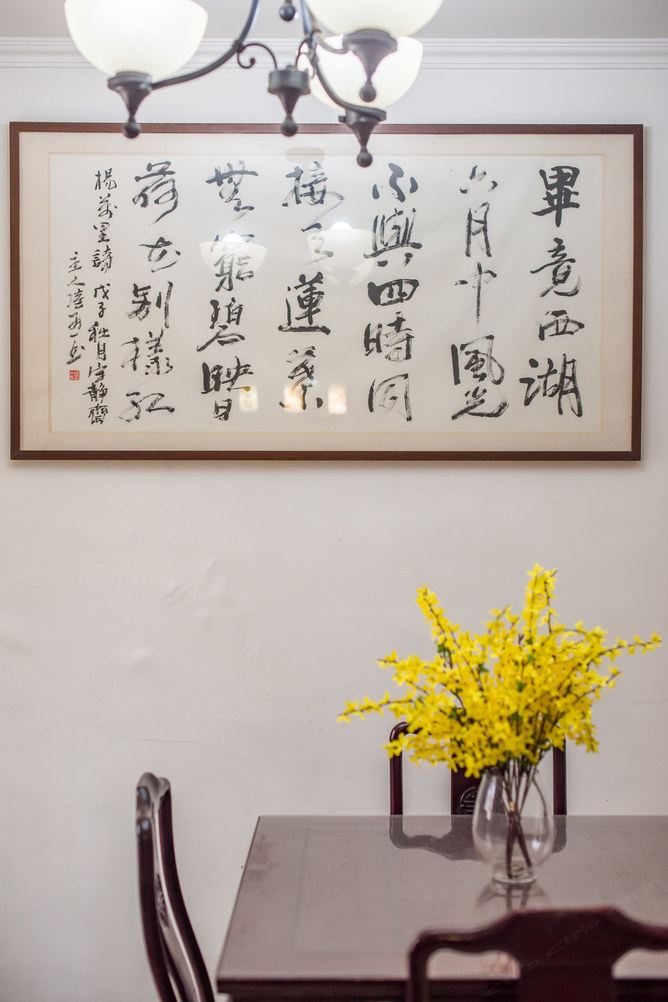 畢竟西湖
六月中風光
不與四時同
接天蓮葉
無窮碧映日
荷花別樣紅
楊萬里詩 戊子秋月 守靜齋